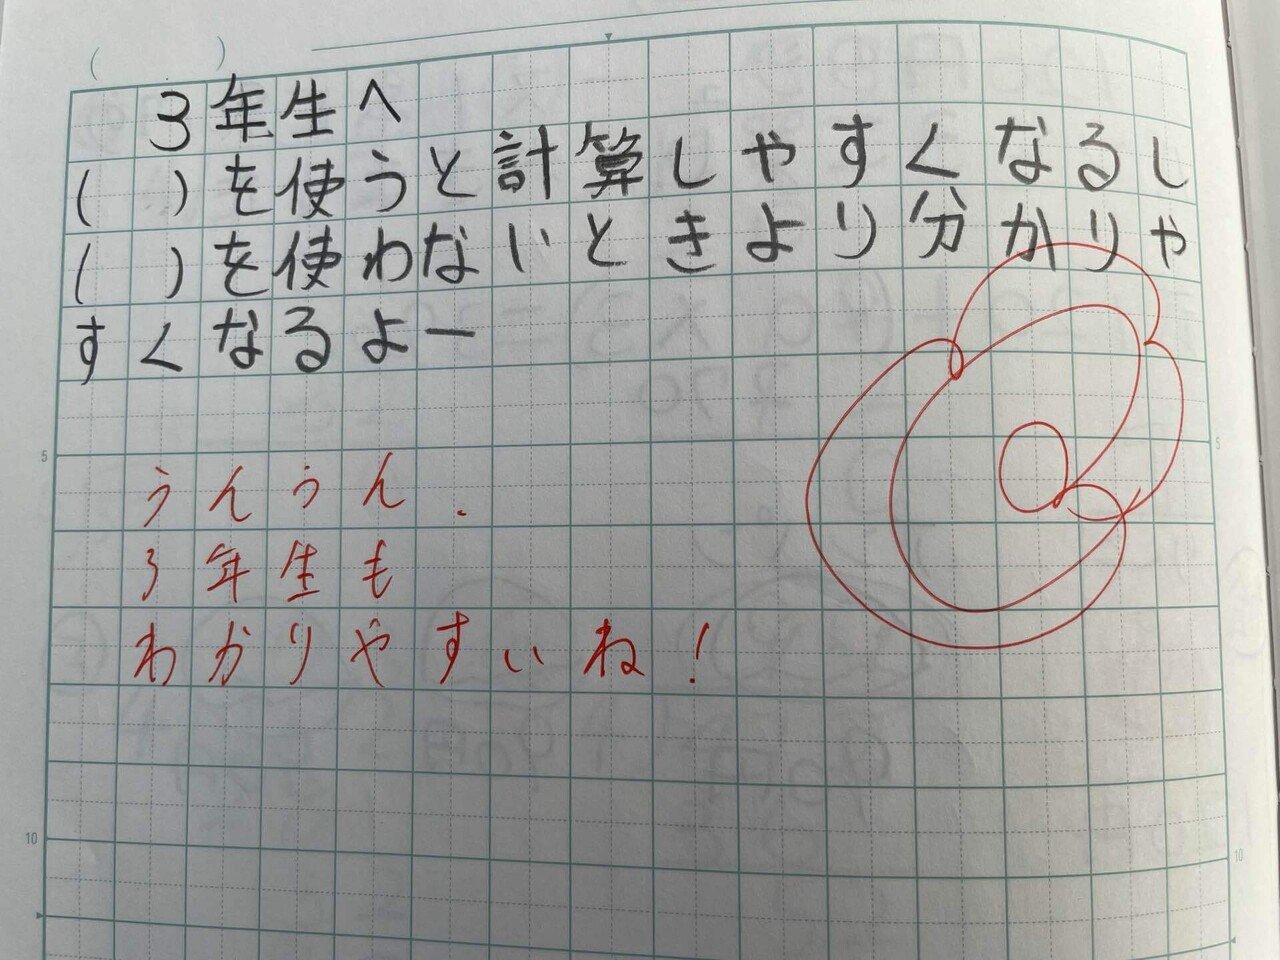 ( )
3年生へ
( )を使うと計算しやすくなるし
( )を使わないときより分かりや
すくなるよー
5
5
うんうん.
3年生も
わかりやすいね!
10
10